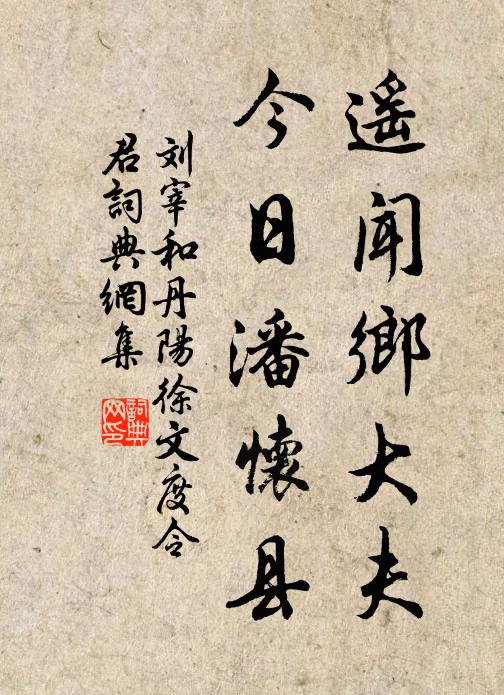 遥闻鄉大夫
今日潘懷县
刘宰和丹陽徐文度令
君詞典網集
詞典
网印